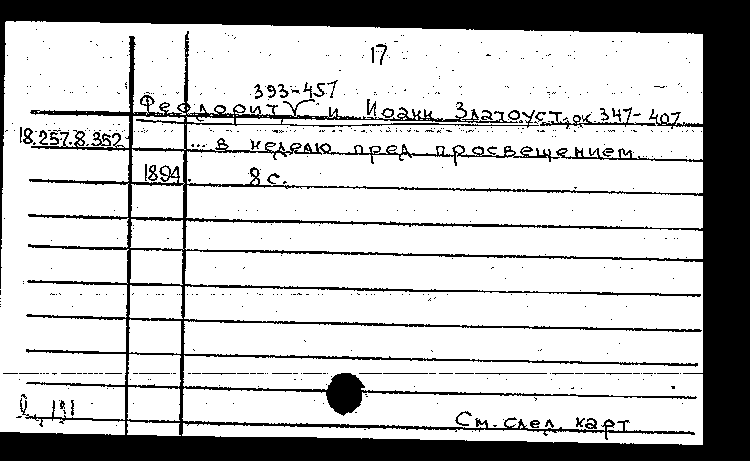 17
393-457
Феодорит, и Иоанн Златоуст, ок 347-407
18.257.8.352 ... в неделю пред просвещением
1894. 8 с.
191
См. след. карт